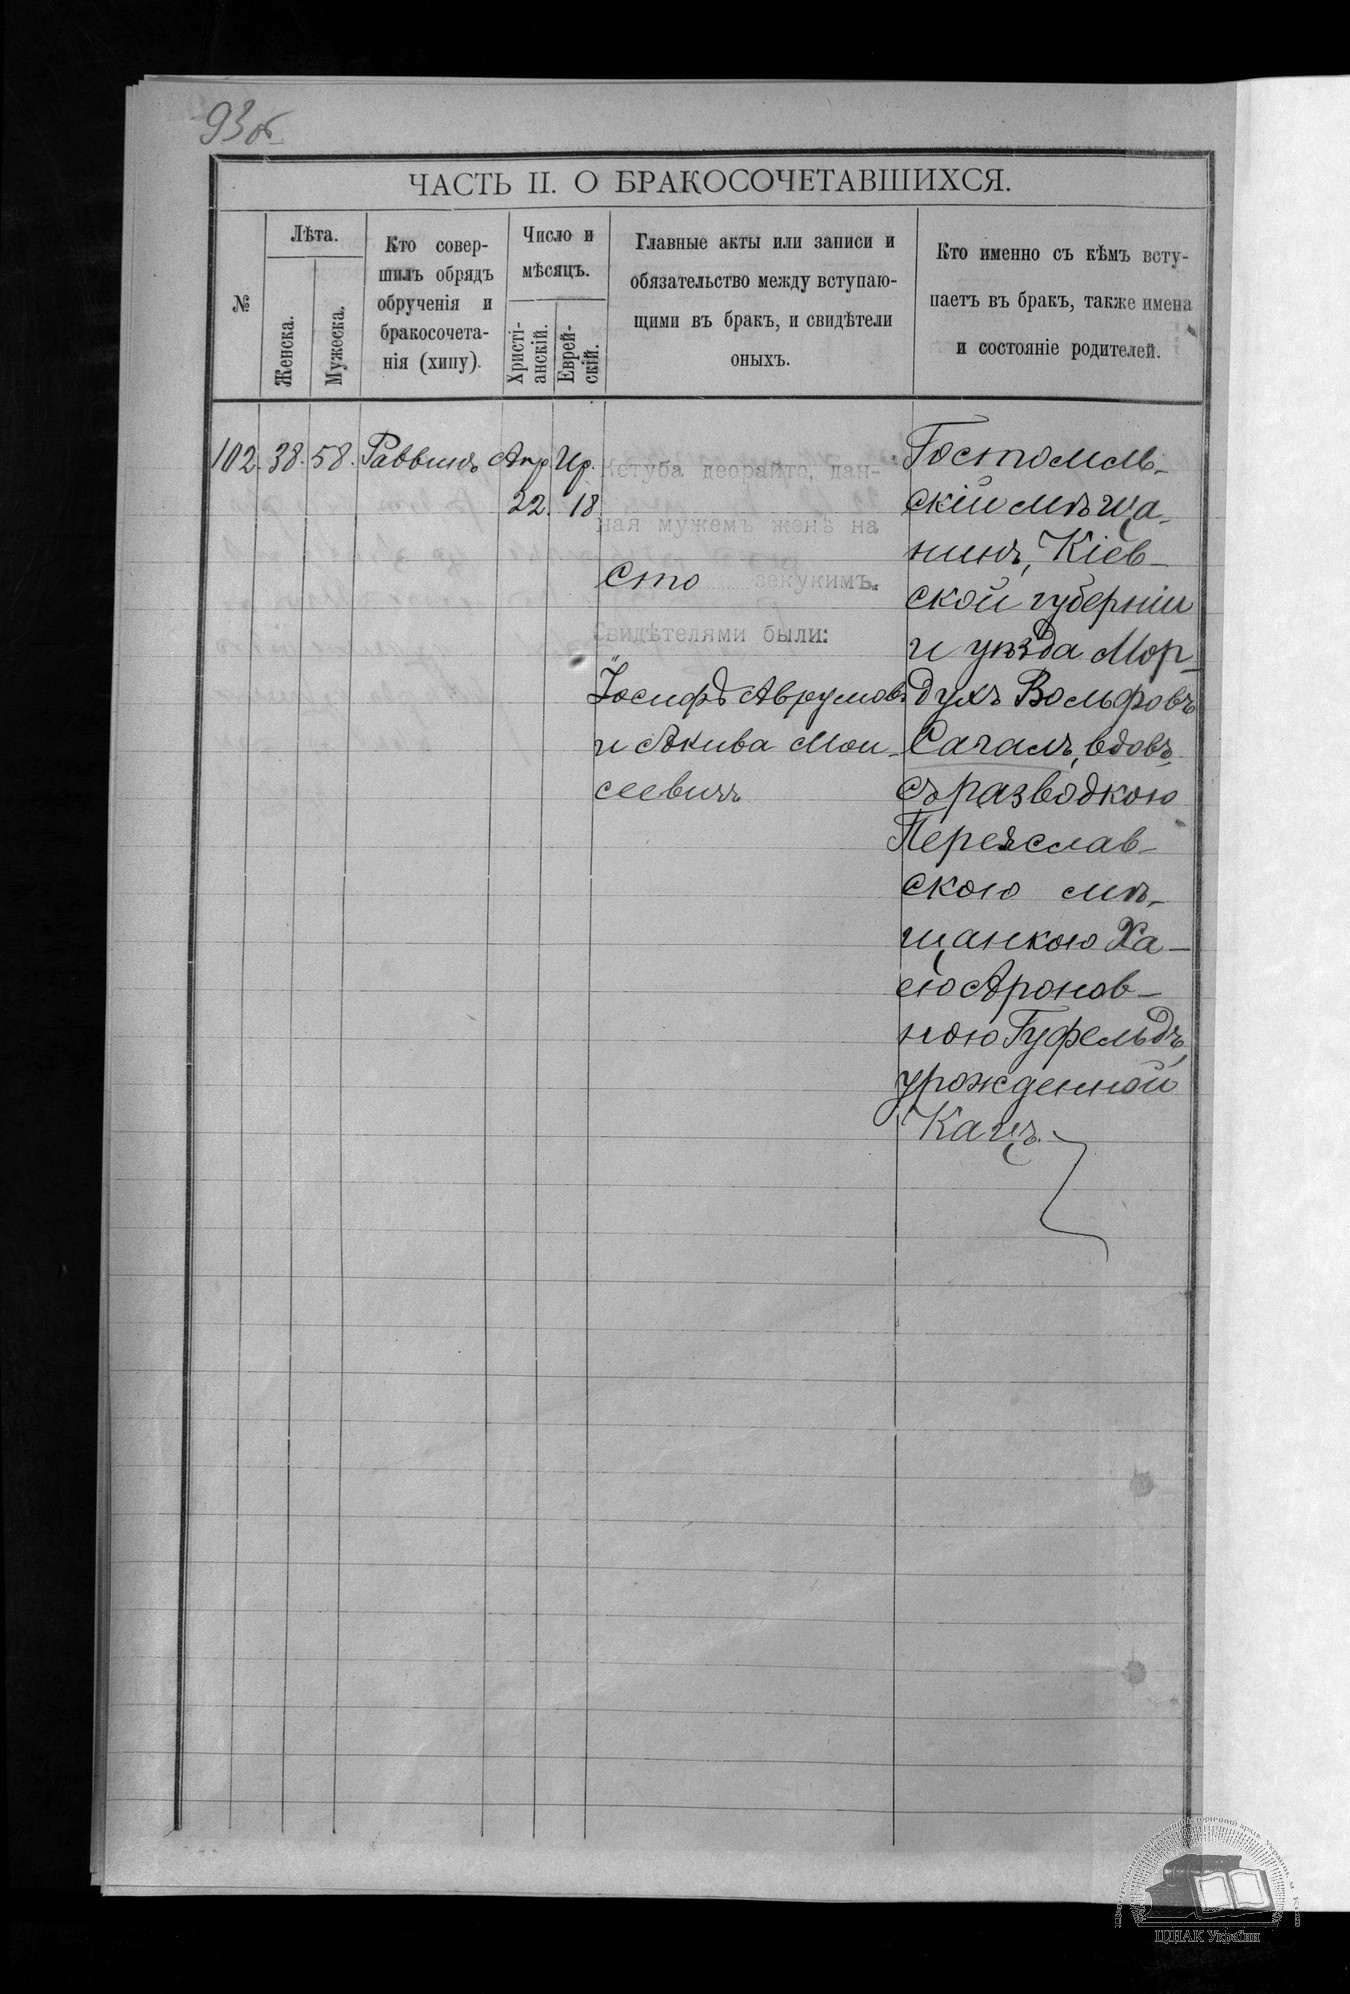 93об
ЧАСТЬ II. О БРАКОСОЧЕТАВШИХСЯ.
№
Лѣта.
Женска.
Мужеска.
Кто совер-
шилъ обрядъ
обрученія и
бракосочета-
нія (хипу).
Число и
мѣсяцъ.
Христі-
анскій.
Еврей-
скій.
Главные акты или записи и
обязательство между вступаю-
щими въ бракъ, и свидѣтели
оныхъ.
Кто именно съ кѣмъ всту-
паетъ въ бракъ, также имена
и состояніе родителей.
102. 38. 58. Раввинъ Апр. Ир.
22. 18
Кетуба деорайто, дан-
ная мужемъ женѣ на
Сто зекукимъ.
Свидѣтелями были:
Іосифъ Аврумовъ
и Акива Мои-
сеевичъ
Гостомль-
скій мѣща-
нинъ, Кіев-
ской губерніи
и уѣзда Мор-
духъ Вольфовъ
Сагалъ, вдовъ,
съ разводкою
Переяслав-
скою мѣ-
щанкою Ха-
ею Аронов-
ною Гуфельдъ,
урожденной
Кацъ.
ЦДІАК України